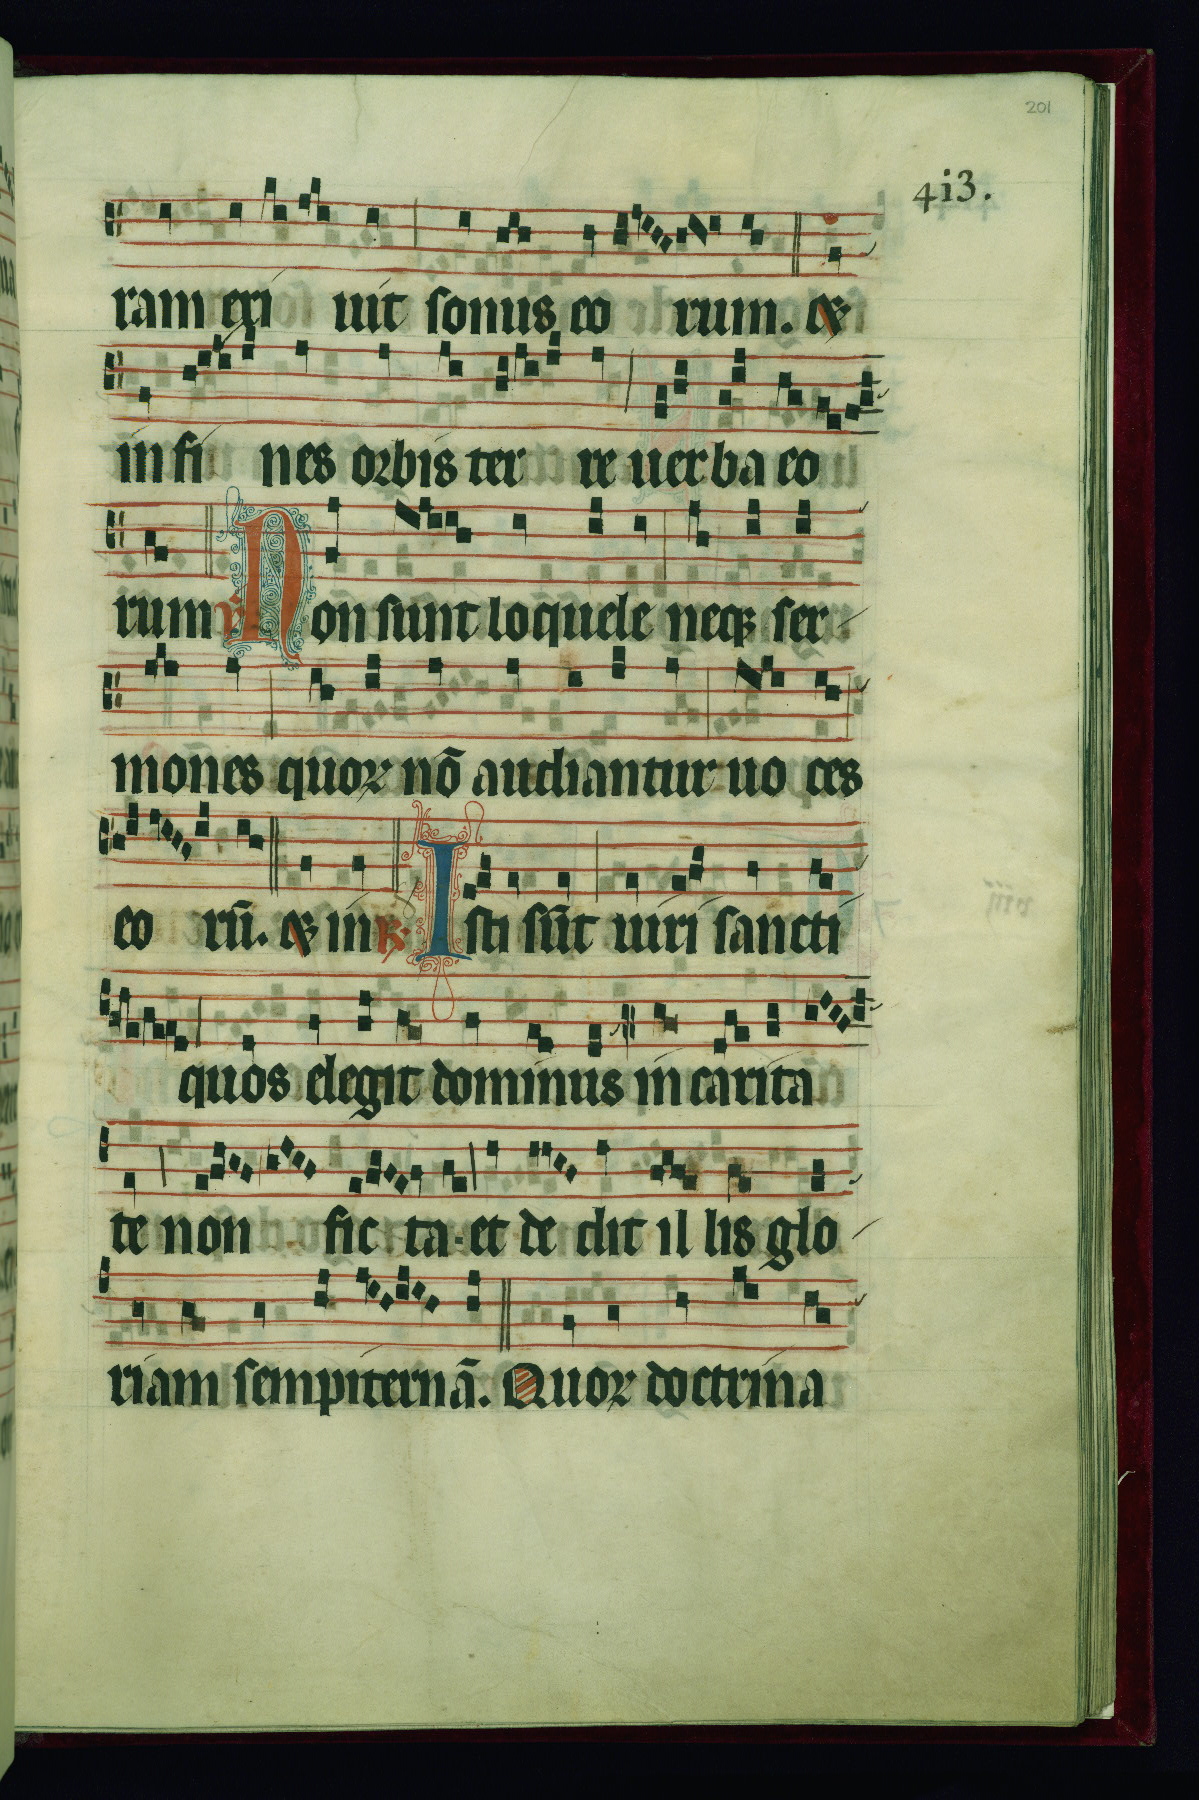 201
413.
ram exi uit sonus eo rum. &
in fi nes orbis ter re uerba eo
rum ℣ Non sunt loquele neqꝫ ser-
mones quoꝝ nō audiantur uo ces
eo rū. & in ℟. Isti sūt uiri sancti
quos elegit dominus in carita
te non fic ta·et de dit il lis glo-
riam sempiternā. Quoꝝ doctrina